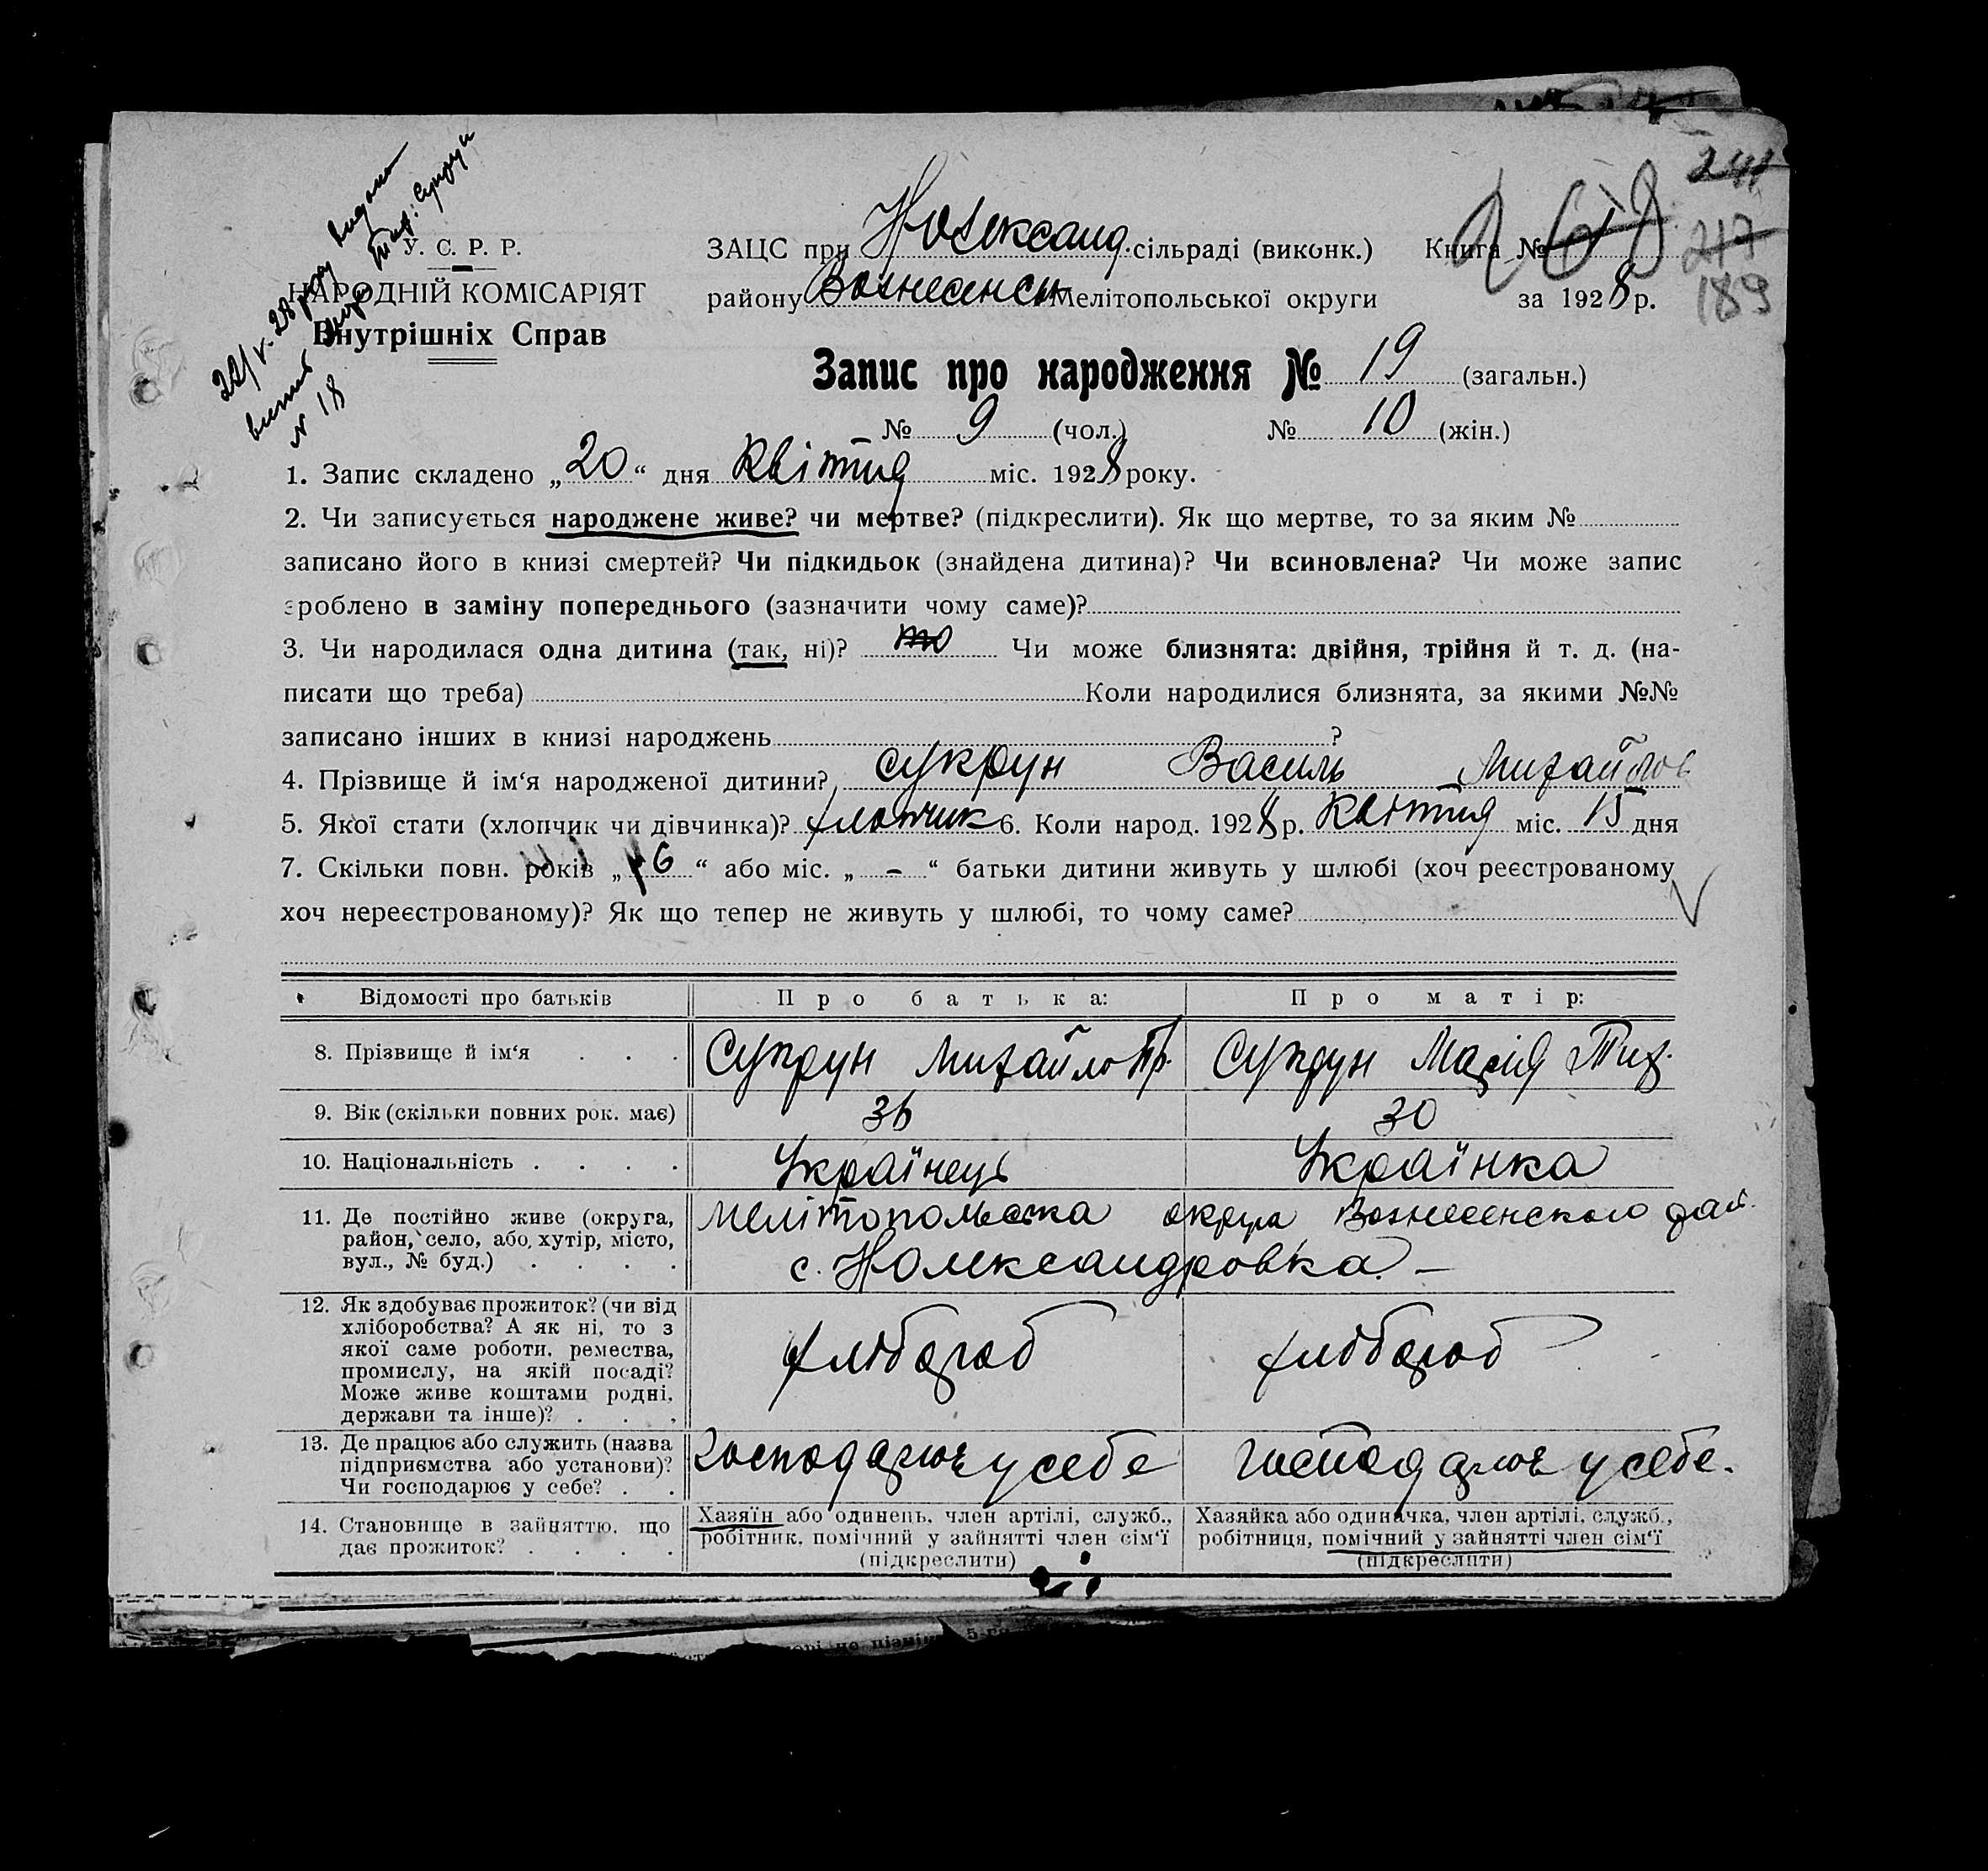 22/V-28 року видано
витяг
Мар: Супрун
№ 18
У. С. Р. Р.
НАРОДНІЙ КОМІСАРІЯТ
Внутрішніх Справ
ЗАЦС при Нолександ. сільраді (виконк.) Книга №
району Вознесенськ Мелітопольської округи за 1928 р.
241
217
189
268
Запис про народження № 19 (загальн.)
№ 9 (чол.) № 10 (жін.)
1. Запис складено „20“ дня Квітня міс. 1928 року.
2. Чи записується народжене живе? чи мертве? (підкреслити). Як що мертве, то за яким №
записано його в книзі смертей? Чи підкидьок (знайдена дитина)? Чи всиновлена? Чи може запис
зроблено в заміну попереднього (зазначити чому саме)?
3. Чи народилася одна дитина (так, ні)? Чи може близнята: двійня, трійня й т. д. (на-
писати що треба) Коли народилися близнята, за якими №№
записано інших в книзі народжень ?
4. Прізвище й ім‘я народженої дитини? Супрун Василь Михайлов
5. Якої стати (хлопчик чи дівчинка)? хлопчик 6. Коли народ. 1928 р. Квітня міс. 15 дня
7. Скільки повн. років „ 6 “ або міс. „ – “ батьки дитини живуть у шлюбі (хоч реєстрованому
хоч нереєстрованому)? Як що тепер не живуть у шлюбі, то чому саме?
Відомості про батьків Про батька: Про матір:
8. Прізвище й ім‘я . . . Супрун Михайло Пр. Супрун Марія Тих.
9. Вік (скільки повних рок. має) 36 30
10. Національність . . . . Українець Українка
11. Де постійно живе (округа, Мелітопольска округа Вознесенского рай.
район, село, або хутір, місто, с. Нолександровка. –
вул., № буд.) . . . .
12. Як здобуває прожиток? (чи від
хліборобства? А як ні, то з
якої саме роботи, ремества, хлібороб хлібороб
промислу, на якій посаді?
Може живе коштами родні,
держави та інше)? . . .
13. Де працює або служить (назва господарює у себе господарює у себе.
підприємства або установи)?
Чи господарює у себе? . .
14. Становище в зайняттю, що
дає прожиток? . . . .
Хазяїн або одинець, член артілі, служб.,
робітник, помічний у зайнятті член сім‘ї
(підкреслити)
Хазяйка або одиначка, член артілі, служб.,
робітниця, помічний у зайнятті член сім‘ї
(підкреслити)